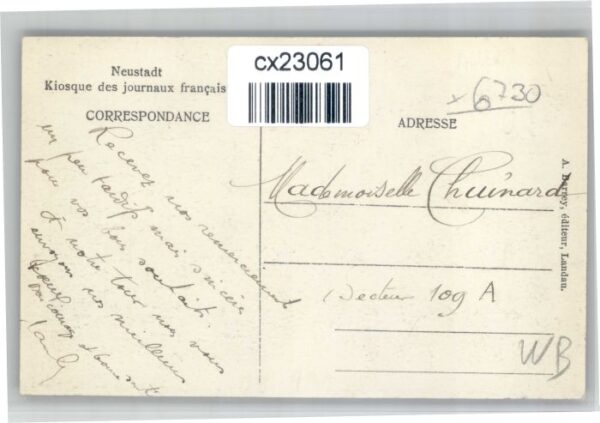 cx23061
Neustadt
Kiosque des journaux français
CORRESPONDANCE
ADRESSE
x 6730
Recevez nos remerciements
un peu tardifs mais sincères
pour vos bons souhaits.
A notre tour nous vous
envoyons nos meilleurs
et bonne santé
Mademoiselle Chuinard
Secteur 109 A
WB
A. Barrey, éditeur, Landau.